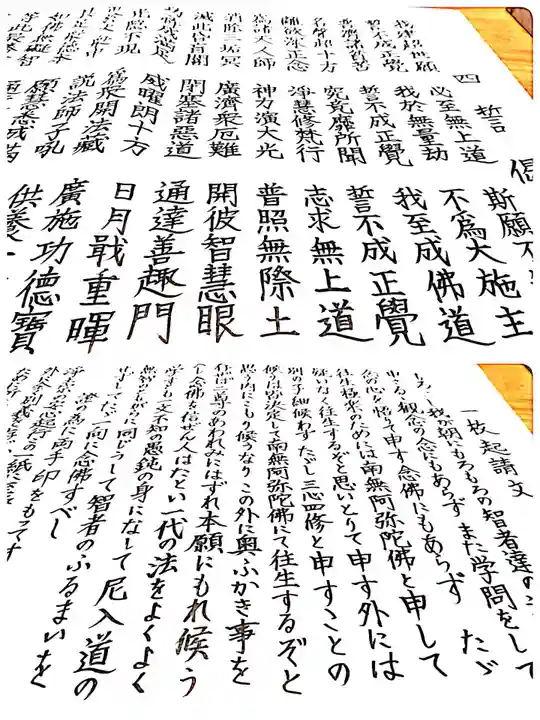 四 誓 偈
我建超世願 必至無上道 斯願不
誓不成正覺 我於無量劫 不爲大施主
普濟諸貧苦 誓不成正覺 我至成佛道
名聲超十方 究竟靡所聞 誓不成正覺
離欲深正念 淨慧修梵行 志求無上道
爲諸天人師 神力演大光 普照無際土
消除三垢冥 廣濟衆厄難 開彼智慧眼
滅此昏盲闇 閉塞諸惡道 通達善趣門
成滿足 威曜朗十方 日月戢重暉
隱不現 爲衆開法藏 廣施功德寶
說法師子吼 供養一
願慧悉成滿
一枚起請文
我が朝にもろもろの智者達の
申さるゝ觀念の念にもあらず また学問をして
念の心を悟りて申す念佛にもあらず たゞ
往生極楽のためには南無阿弥陀佛と申して
疑いなく往生するぞと思いとりて申す外には
別の子細候わず たゞし三心四修と申すことの
候うは皆決定して南無阿弥陀佛にて往生するぞと
思う内にこもり候うなり この外に奥ふかき事を
存ぜば二尊のあわれみにはずれ本願にもれ候う
べし 念佛を信ぜん人はたとい一代の法をよくよく
学すとも一文不知の愚鈍の身になして 尼入道の
無智のともがらに同じうして 智者のふるまいを
せずして たゞ一向に念佛すべし
證の為に両手印をもってす